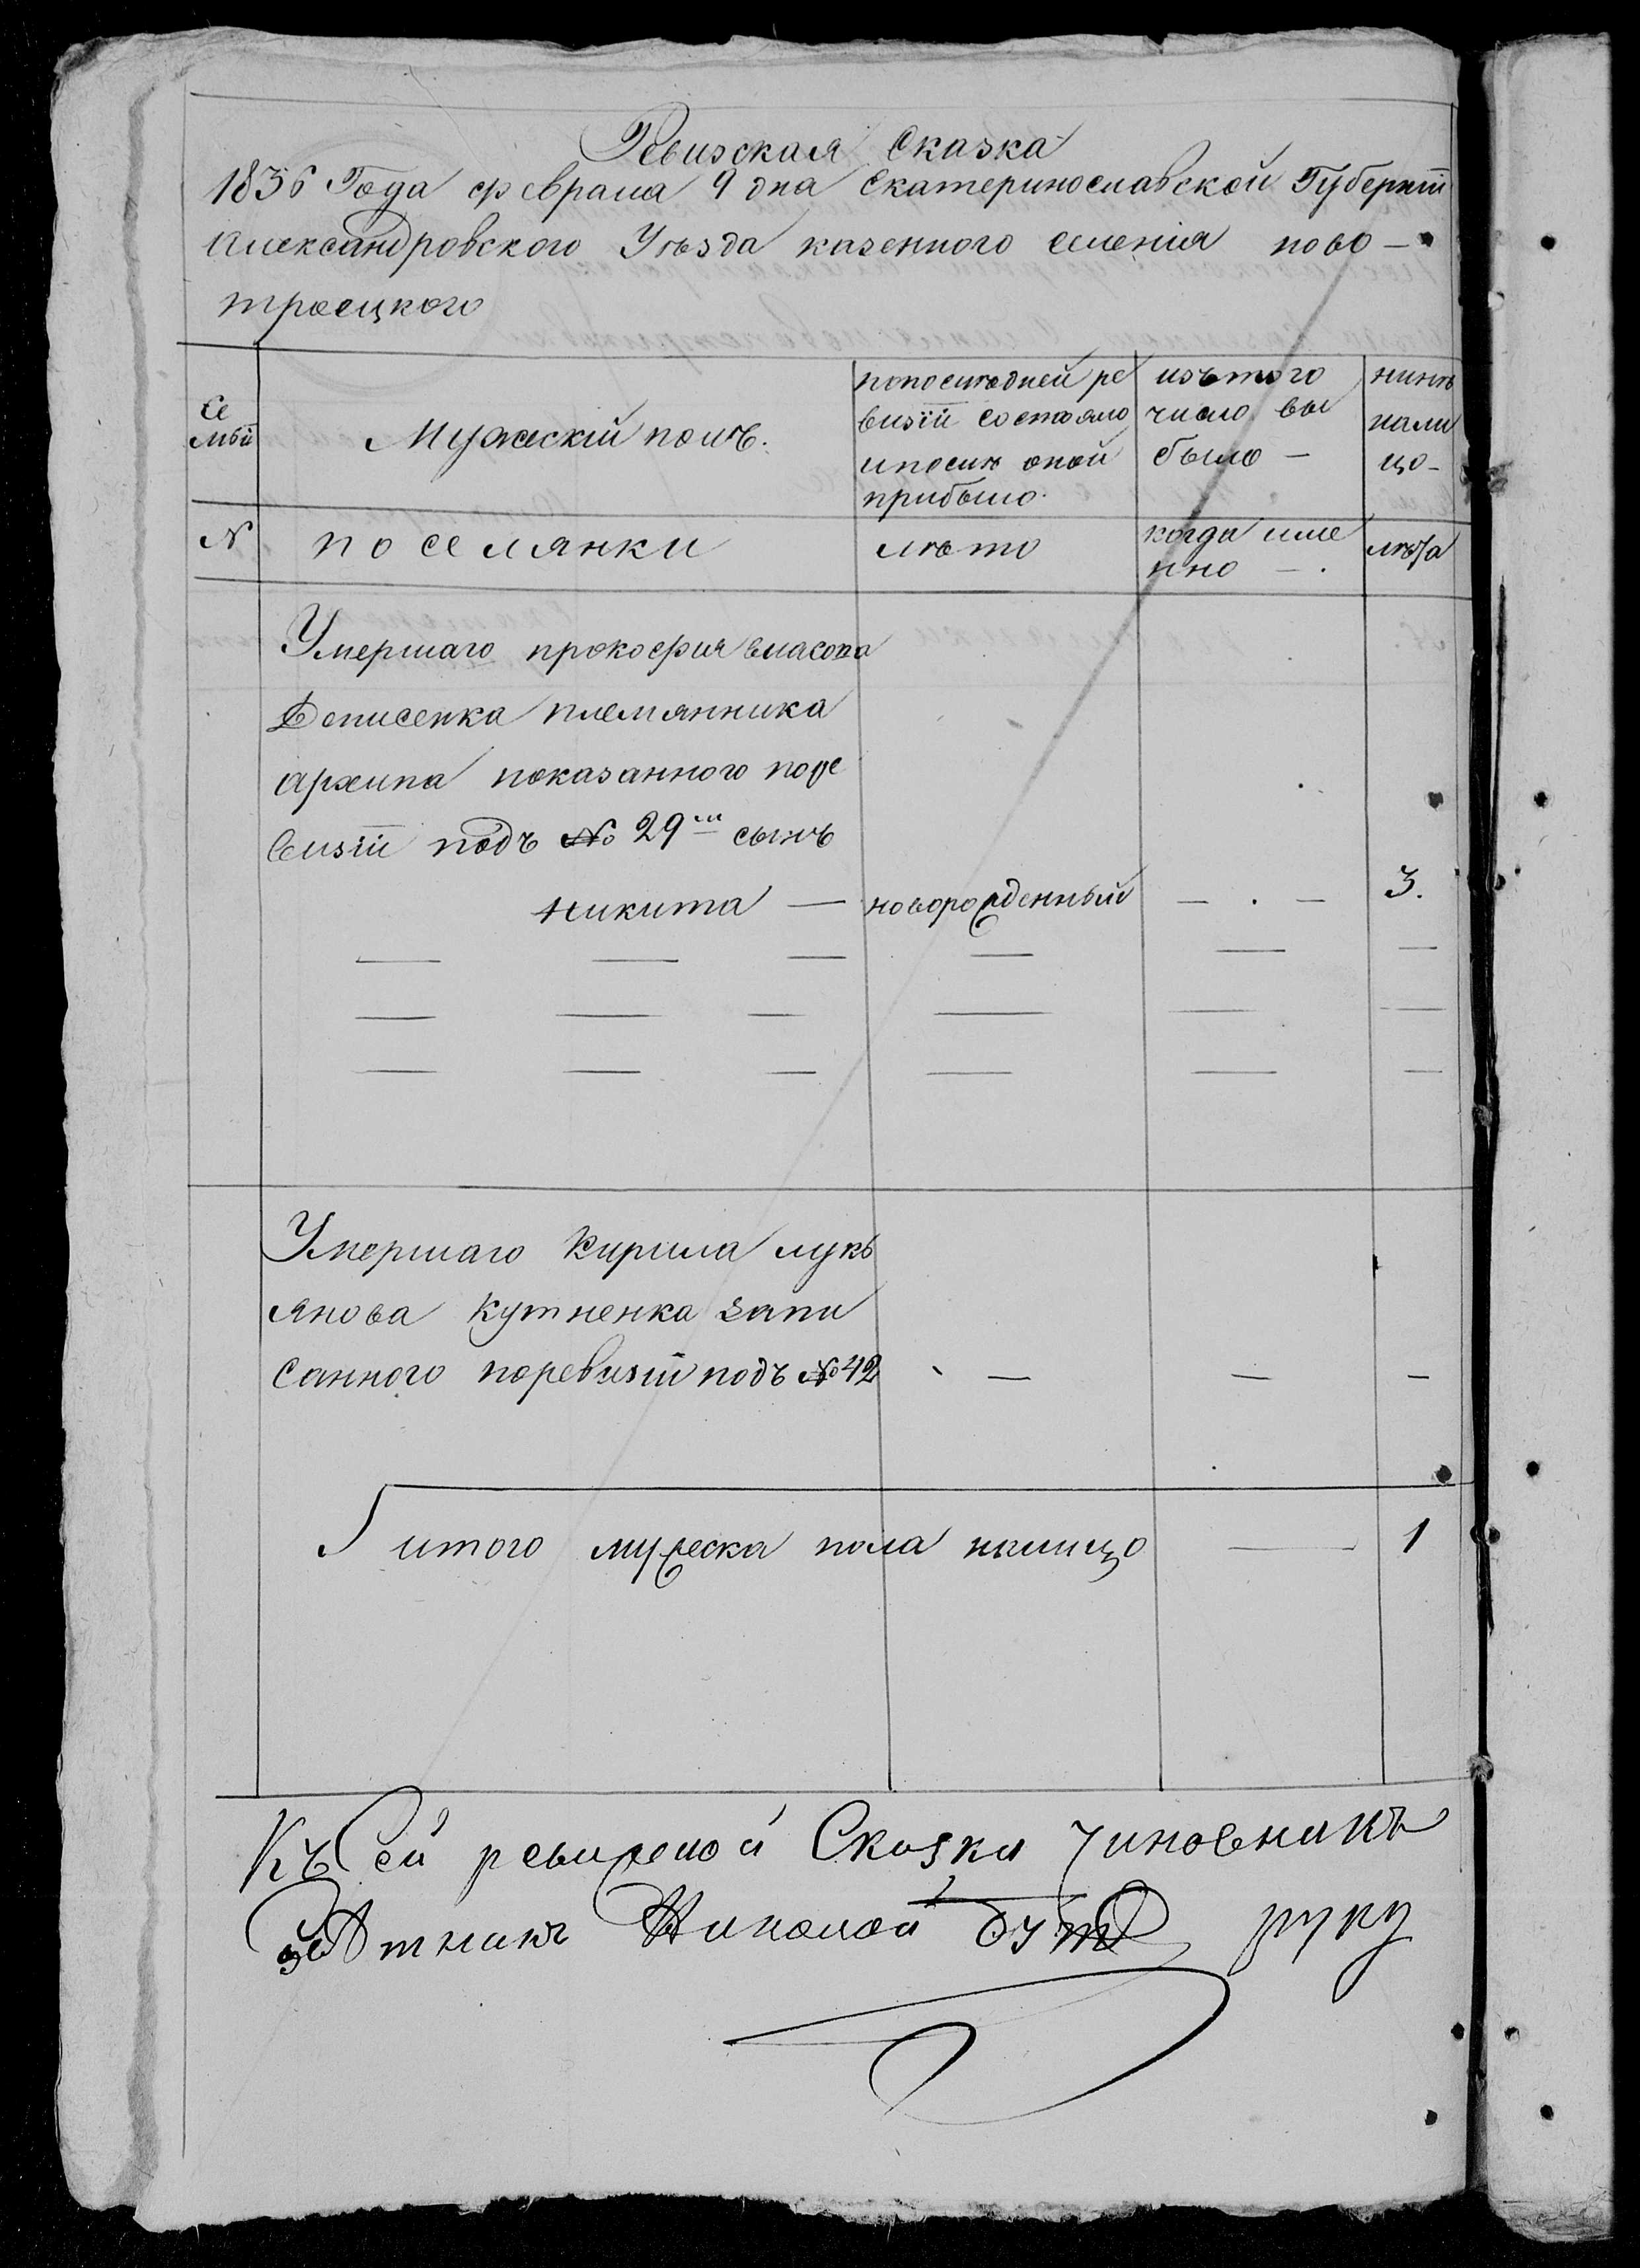 Ревизская Сказка
1836 Года февраля 9 дня Екатеринославской Губернии
Александровского Уезда казенного селения ново –
троецкого
Се
мьи
Мужескiй полъ.
попоследней ре
визiи состояло
ипосле оной
прибыло.
изътого
число вы
было –
нине
нали
цо –
№
поселянки
лето
когда име
нно – .
лета
Умершаго прокофия власова
Денисенка племянника
архипа показанного поре
визiи подъ № 29м сынъ
никита — новорожденный — . — 3.
Умершаго Кирила лукь
янова Кутненка запи
санного поревизiи подъ № 42 — — —
итого мужеска пола налицо — 1
Къ сей ревизской Сказки Чиновникъ
Николай руку